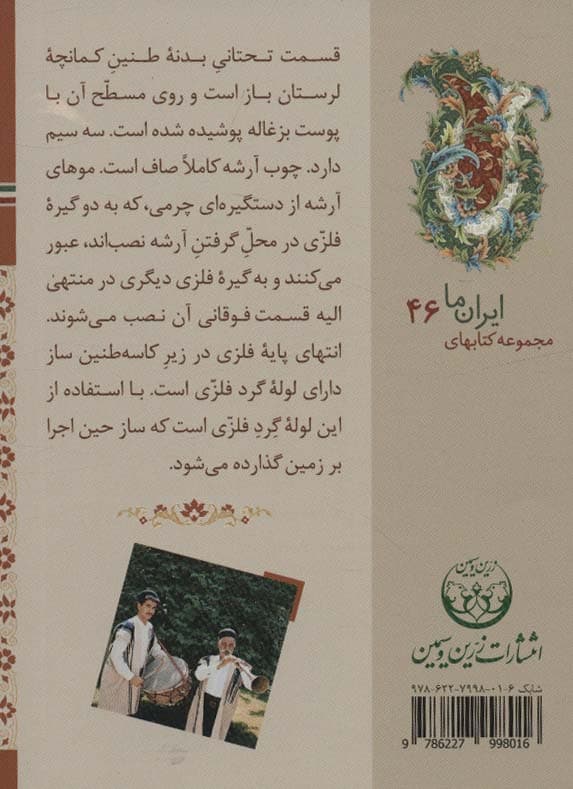 قسمت تحتانیِ بدنهٔ طنینِ کمانچهٔ
لرستان باز است و روی مسطّح آن با
پوست بزغاله پوشیده شده است. سه سیم
دارد. چوب آرشه کاملاً صاف است. موهای
آرشه از دستگیره‌ای چرمی، که به دو گیرهٔ
فلزّی در محلِّ گرفتنِ آرشه نصب‌اند، عبور
می‌کنند و به گیرهٔ فلزی دیگری در منتهیٰ
الیه قسمت فوقانی آن نصب می‌شوند.
انتهای پایهٔ فلزی در زیرِ کاسه‌طنین ساز
دارای لولهٔ گرد فلزّی است. با استفاده از
این لولهٔ گِردِ فلزّی است که ساز حین اجرا
بر زمین گذارده می‌شود.
ایران ما ۴۶
مجموعه کتابهای
زرین و سیمین
انتشارات زرین و سیمین
شابک ۶-۰۱-۷۹۹۸-۶۲۲-۹۷۸
9 786227 998016